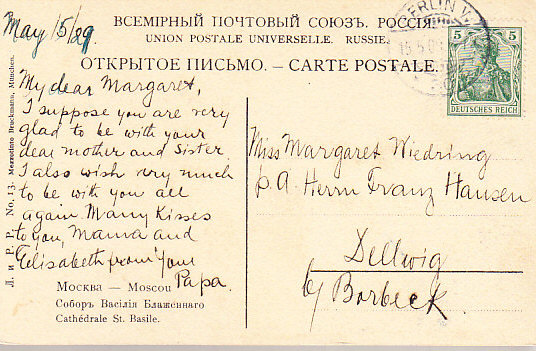 May 15/29
ВСЕМІРНЫЙ ПОЧТОВЫЙ СОЮЗЪ. РОССІЯ
UNION POSTALE UNIVERSELLE. RUSSIE.
ОТКРЫТОЕ ПИСЬМО. — CARTE POSTALE.
BERLIN W.
5 5
DEUTSCHES REICH
My dear Margaret,
I suppose you are very
glad to be with your
dear mother and Sister
I also wish very much
to be with you all
again Many Kisses
to you, Mama and
Elisabeth from Your
Papa.
Miss Margaret Wiedring
p. A. Herrn Franz Hansen
Dellwig
b/ Borbeck.
Москва — Moscou
Соборъ Василія Блаженнаго
Cathédrale St. Basile.
Л. и Р. Р. No. 13. Mezzotinto Bruckmann, München.